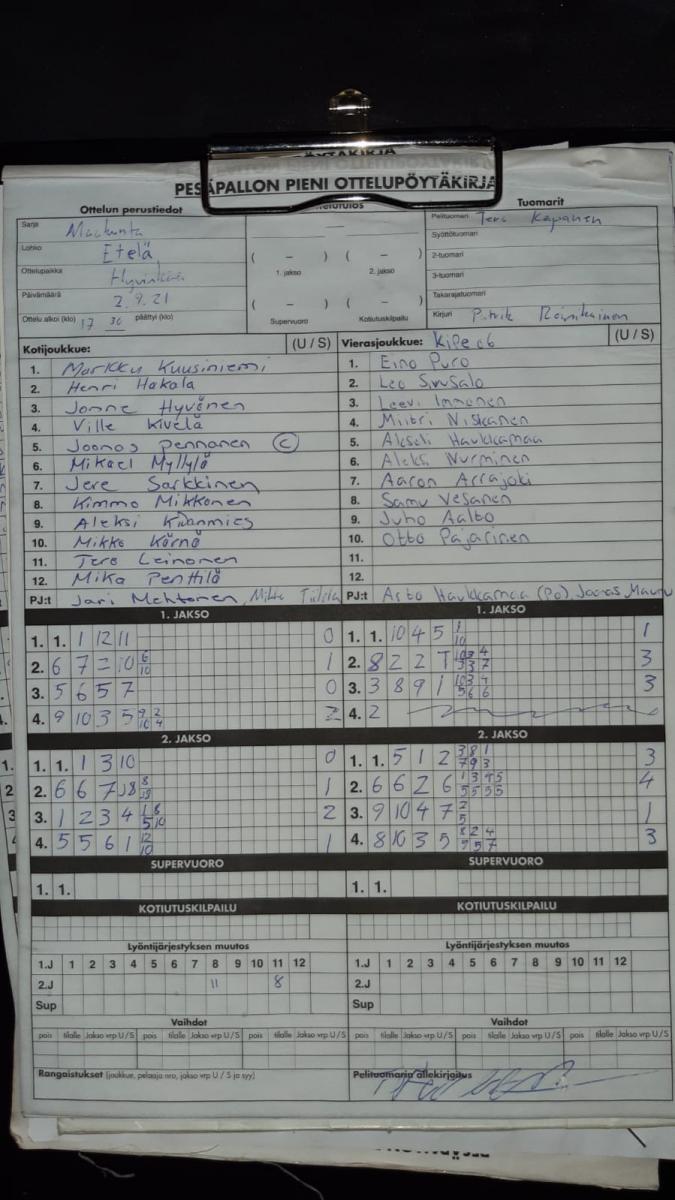 PESÄPALLON PIENI OTTELUPÖYTÄKIRJA
Ottelun perustiedot
Sarja
Lohko Etelä
Ottelupaikka Hyvinkää
Päivämäärä 2.9.21
Ottelu alkoi (klo) 17 30 päättyi (klo)
( – ) ( – )
1. jakso 2. jakso
( – ) ( – )
Supervuoro Kotiutuskilpailu
Tuomarit
Pelituomari Tero Kapanen
Syöttötuomari
2-tuomari
3-tuomari
Takarajatuomari
Kirjuri
Kotijoukkue: (U / S)
1. Markku Kuusiniemi
2. Henri Hakala
3. Jonne Hyvönen
4. Ville Kivelä
5. Joonas Pennanen C
6. Mikael Myllylä
7. Jere Sarkkinen
8. Kimmo Mikkonen
9. Aleksi Kivanmies
10. Mikko Kärnä
11. Tero Leinonen
12. Mika Penttilä
PJ:t Jari Mehtonen,
Vierasjoukkue: (U / S)
1. Eino Puro
2. Leo Sivusalo
3. Leevi Immonen
4. Miitri Niskanen
5. Akseli Haukkamaa
6. Aleksi Nurminen
7. Aaron Arrajoki
8. Samu Vesanen
9. Juho Aalto
10. Otto Pajarinen
11.
12.
PJ:t Asto Haukkamaa (Po), Joonas
1. JAKSO
1. 1. 1 12 11 0
2. 6 7 2 10 6 10 1
3. 5 6 5 7 0
4. 9 10 3 5 9 2 10 4 2
2. JAKSO
1. 1. 1 3 10 0
2. 6 6 7 1
3. 1 2 3 4 2
4. 5 5 6 1 12 10 1
SUPERVUORO
1. 1.
KOTIUTUSKILPAILU
Lyöntijärjestyksen muutos
1.J 1 2 3 4 5 6 7 8 9 10 11 12
2.J 11 8
Sup
Vaihdot
pois tilalle Jakso vrp U / S pois tilalle Jakso vrp U / S pois tilalle Jakso vrp U / S
Rangaistukset (joukkue, pelaaja nro, jakso vrp U / S ja syy)
1. JAKSO
1. 1. 10 4 5 1 10 1
2. 8 2 2 3
3. 3 8 9 1 3
4. 2
2. JAKSO
1. 1. 5 1 2 3 8 1 7 9 3 3
2. 6 6 2 6 1 3 4 5 5 5 5 5 4
3. 9 10 4 7 2 5 1
4. 8 10 3 5 8 2 4 5 5 7 3
SUPERVUORO
1. 1.
KOTIUTUSKILPAILU
Lyöntijärjestyksen muutos
1.J 1 2 3 4 5 6 7 8 9 10 11 12
2.J
Sup
Vaihdot
pois tilalle Jakso vrp U / S pois tilalle Jakso vrp U / S pois tilalle Jakso vrp U / S
Pelituomarin allekirjoitus